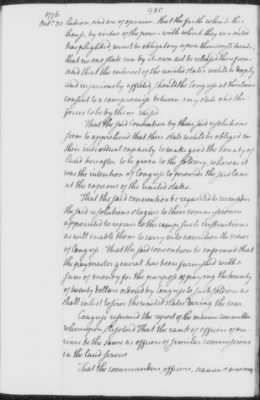 935
1776
Octr. 30
lution, and are of opinion that the faith which this
house, by virtue of the power with which they are vested
has plighted, must be obligatory upon their constituents;
that no one state can by its own act be released therefrom
and that the interest of the united states would be deeply
and injuriously affected, should the Congress at this time
consent to a compromise between any state and the
forces to be by them raised.
That the said Convention by their said resolutions
seem to apprehend that their state would be obliged in
their individual capacity to make good the bounty of
land hereafter to be given to the soldiery, whereas it
was the intention of Congress to provide the said land
at the expence of the united states.
That the said convention be requested to reconsider
the said resolutions & to give to their commissioners
appointed to repair to the camp such instructions
as will enable them to carry into execution the views
of Congress That the said Convention be informed that
the paymaster general has been furnished with a
sum of money for the purpose of paying the bounty
of twenty dollars ordered by Congress to such soldiers as
shall inlist to serve the united states during the war.
Congress resumed the report of the marine committee
whereupon Resolved That the rank of officers of ma-
rines be the same as officers of similar commissions
in the land service
That the commanders, officers, seamen & marines